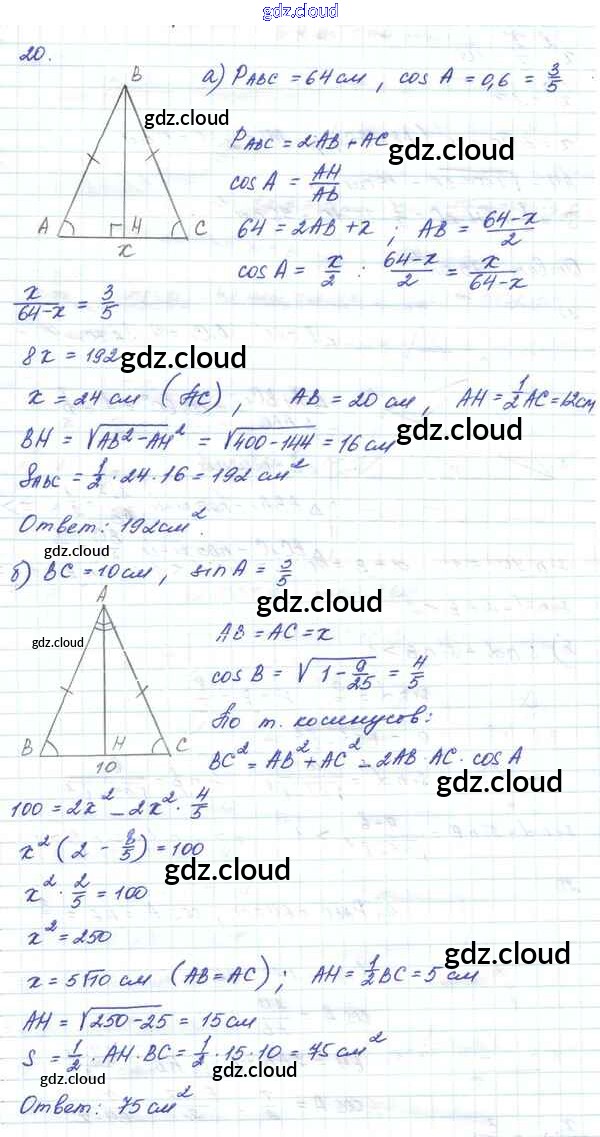 gdz.cloud
20.
а) PАВС = 64 см, cos A = 0,6 = 3/5
B
gdz.cloud
PАВС = 2АВ + АС
gdz.cloud
cos A = AH/AB
A H C
x
64 = 2AB + x ; AB = (64-x)/2
cos A = x/2 : (64-x)/2 = x/(64-x)
x/(64-x) = 3/5
8x = 192
gdz.cloud
x = 24 см (AC), AB = 20 см, AH = 1/2 AC = 12см
BH = √(AB² - AH²) = √(400-144) = 16 см
gdz.cloud
SАВС = 1/2 · 24 · 16 = 192 см²
Ответ: 192 см².
gdz.cloud
б) BC = 10 см, sin A = 3/5
gdz.cloud
A
AB = AC = x
gdz.cloud
cos B = √(1 - 9/25) = 4/5
По т. косинусов:
B H C
10
BC² = AB² + AC² - 2AB AC · cos A
gdz.cloud
100 = 2x² - 2x² · 4/5
x² (2 - 8/5) = 100
gdz.cloud
x² · 2/5 = 100
x² = 250
gdz.cloud
x = 5√10 см (AB = AC) ; AH = 1/2 BC = 5 см
AH = √(250-25) = 15 см
S = 1/2 · AH · BC = 1/2 · 15 · 10 = 75 см²
gdz.cloud
gdz.cloud
Ответ: 75 см²
gdz.cloud